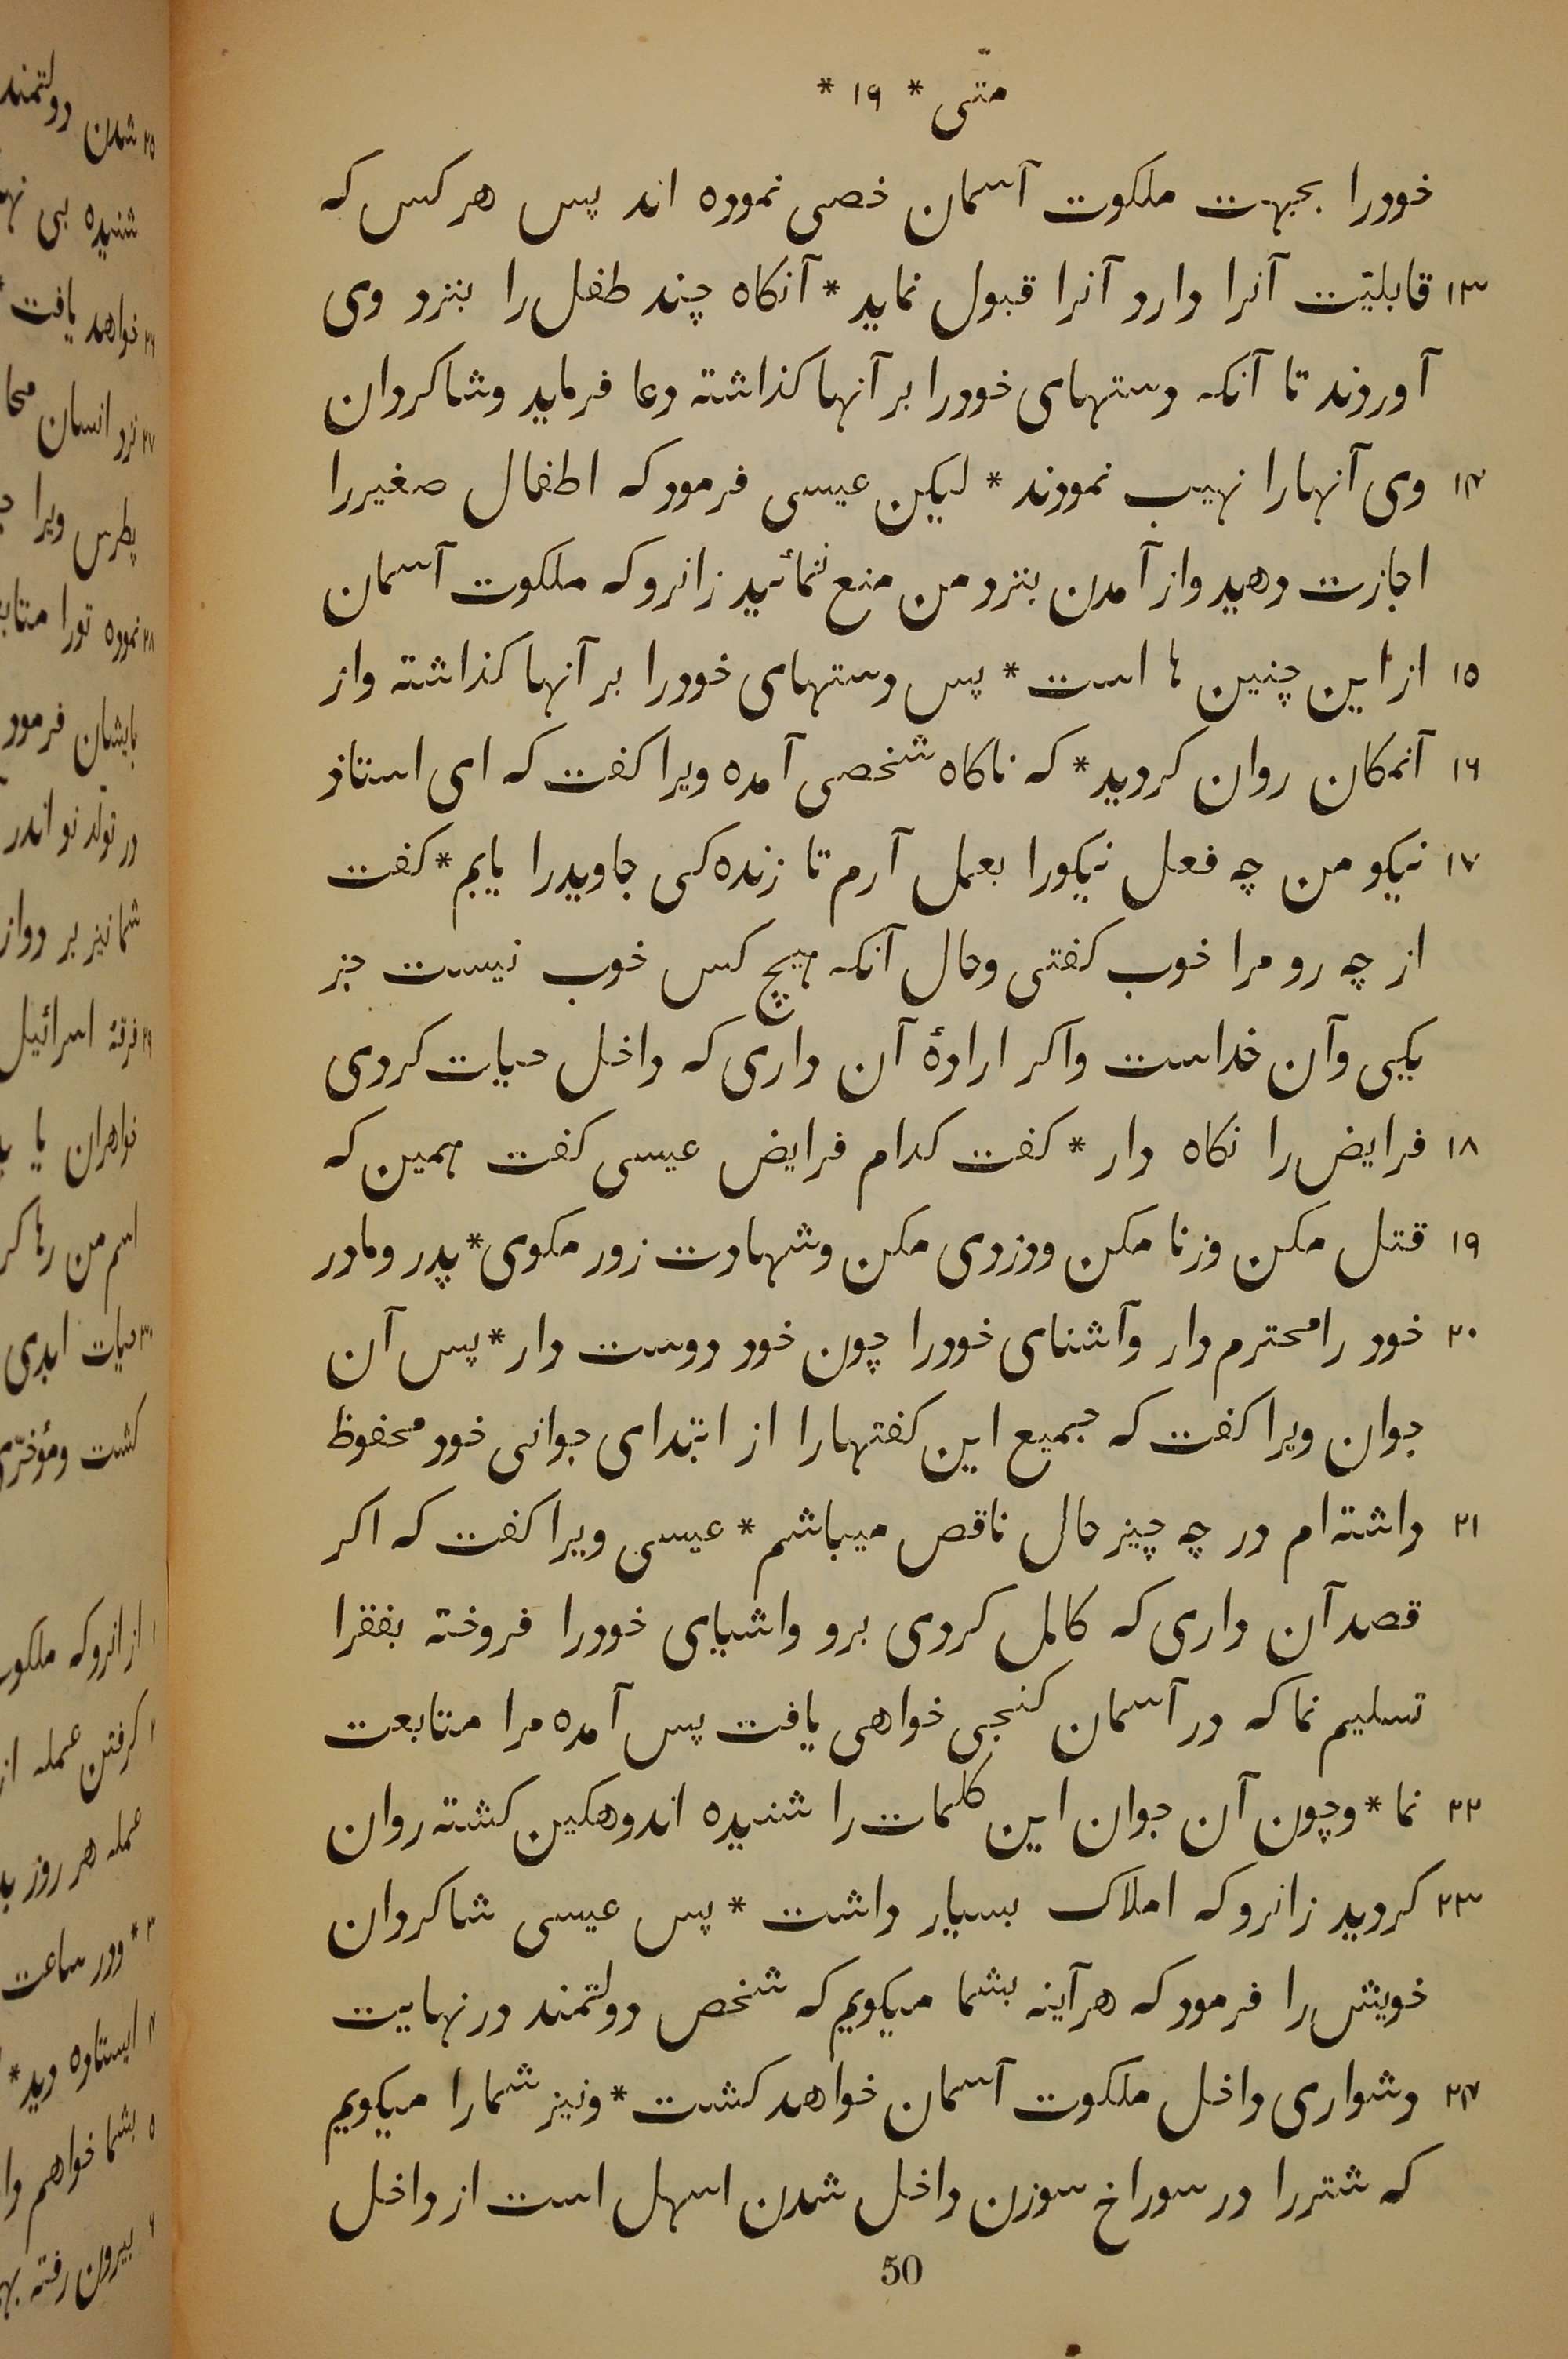 متّی * ١٩ *
خودرا بجبهت ملکوت آسمان خصی نموده اند پس هر کس که
١٣ قابلیّت آنرا دارد آنرا قبول نماید * آنکاه چند طفل را بنزد وی
آوردند تا آنکه دستهای خودرا بر آنها کذاشته دعا فرماید وشاکردان
١۴ وی آنهارا نهیب نمودند * لیکن عیسی فرمود که اطفال صغیررا
اجازت دهید واز آمدن بنزد من منع ننمائید زانرو که ملکوت آسمان
١٥ از این چنین ها است * پس دستهای خودرا بر آنها کذاشته واز
١٦ آنمکان روان کردید * که ناکاه شخصی آمده ویرا کفت که ای استاذ
١٧ نیکو من چه فعل نیکورا بعمل آرم تا زنده کی جاویدرا یابم * کفت
از چه رو مرا خوب کفتی وحال آنکه هیچ کس خوب نیست جز
یکی وآن خداست واکر ارادهٔ آن داری که داخل حیات کردی
١٨ فرایض را نکاه دار * کفت کدام فرایض عیسی کفت همین که
١٩ قتل مکن وزنا مکن ودزدی مکن وشهادت زور مکوی * پدر ومادر
٢٠ خود را محترم دار وآشنای خودرا چون خود دوست دار * پس آن
جوان ویرا کفت که جمیع این کفتهارا از ابتدای جوانی خود محفوظ
٢١ داشته ام در چه چیز حال ناقص میباشم * عیسی ویرا کفت که اکر
قصد آن داری که کامل کردی برو واشیای خودرا فروخته بفقرا
تسلیم نما که در آسمان کنجی خواهی یافت پس آمده مرا متابعت
٢٢ نما * وچون آن جوان این کلمات را شنیده اندوهکین کشته روان
٢٣ کردید زانرو که املاک بسیار داشت * پس عیسی شاکردان
خویش را فرمود که هر آینه بشما میکویم که شخص دولتمند در نهایت
٢۴ دشواری داخل ملکوت آسمان خواهد کشت * ونیز شمارا میکویم
که شتررا در سوراخ سوزن داخل شدن اسهل است از داخل
50
٢٥ شدن دولتمند
شنیده بی
٢٦ خواهد یافت *
٢٧ نزد انسان
پطرس ویرا
٢٨ نموده تورا
بایشان فرمود
در تولد نو اندر
شما نیز بر
٢٩ فرقهٔ اسرائیل
خواهران یا
اسم من رها
٣٠ حیات ابدی
کشت
١ از انرو که
٢ کرفتن عمله از
عمله هر روز
٣ * ودر ساعت
۴ ایستاده دید *
٥ بشما خواهم
٦ بیرون رفته